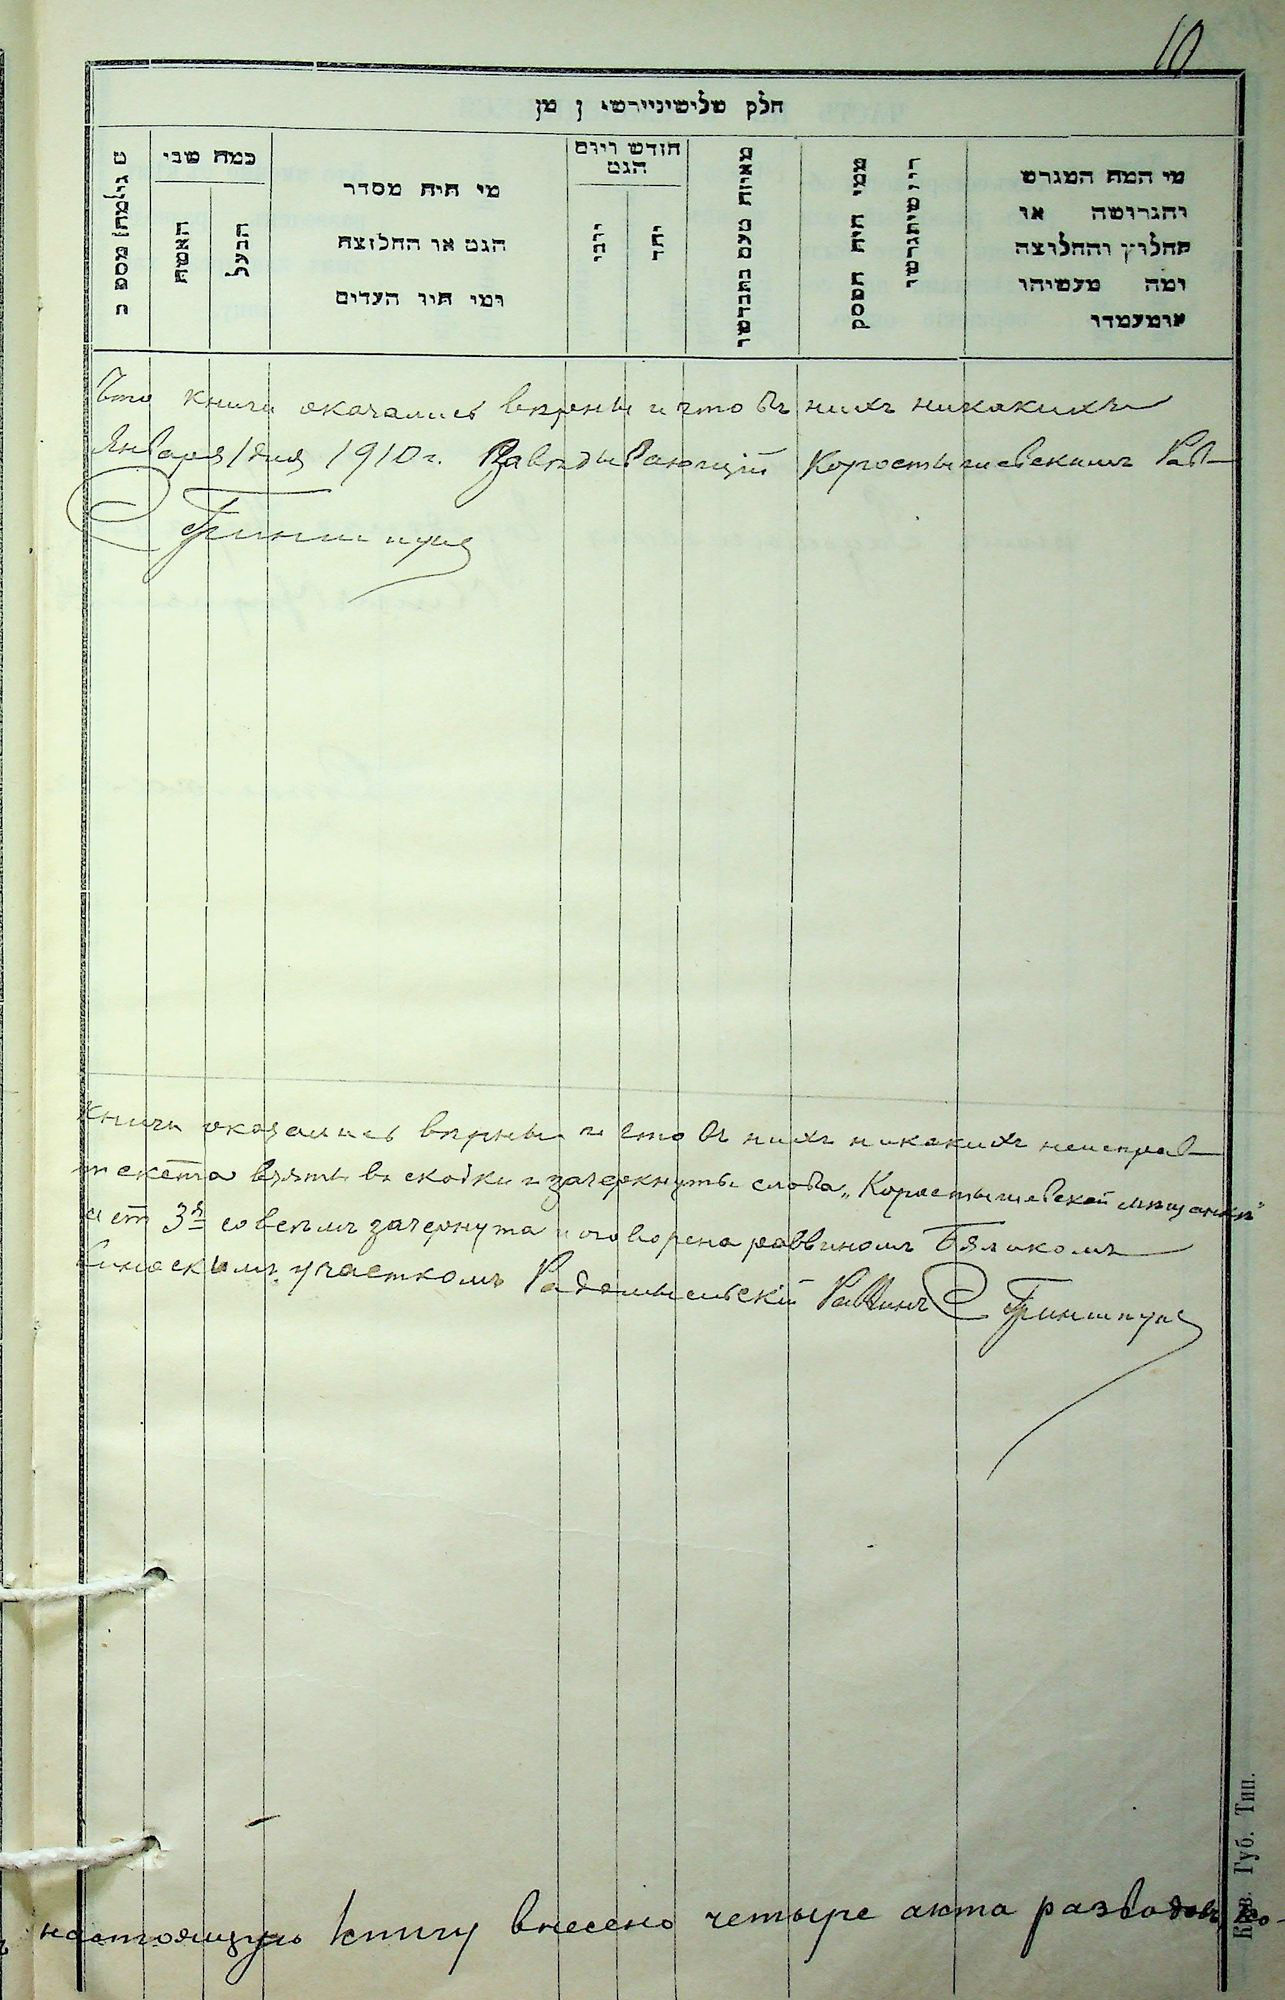 10
חלק שלישי
מי המה המגרש
והגרושה או
החלוץ והחלוצה
ומה מעשיהו
ומעמדו
ממי היה הפסק
מאיזה טעם נתגרשו
חודש ויום
הגט
יהודי
נוצרי
מי היה מסדר
הגט או החלוצה
ומי היו העדים
כמה שני
הבעל
האשה
что книги оказались вѣрны и что въ нихъ никакихъ
Января 1 дня 1910 г. Завѣдывающій Коростышевскимъ Рав-
Гриншпунъ
книги оказались вѣрны и что въ нихъ никакихъ неисправ-
взяты въ скобки и зачеркнуты слова „Коростышевской мѣщанки"
3я совсѣмъ зачеркнута и оговорена раввиномъ Бяликомъ
участкомъ Радомысльскій Раввинъ Гриншпунъ
настоящую книгу внесено четыре акта разводовъ, ко-
Кіев. Губ. Тип.